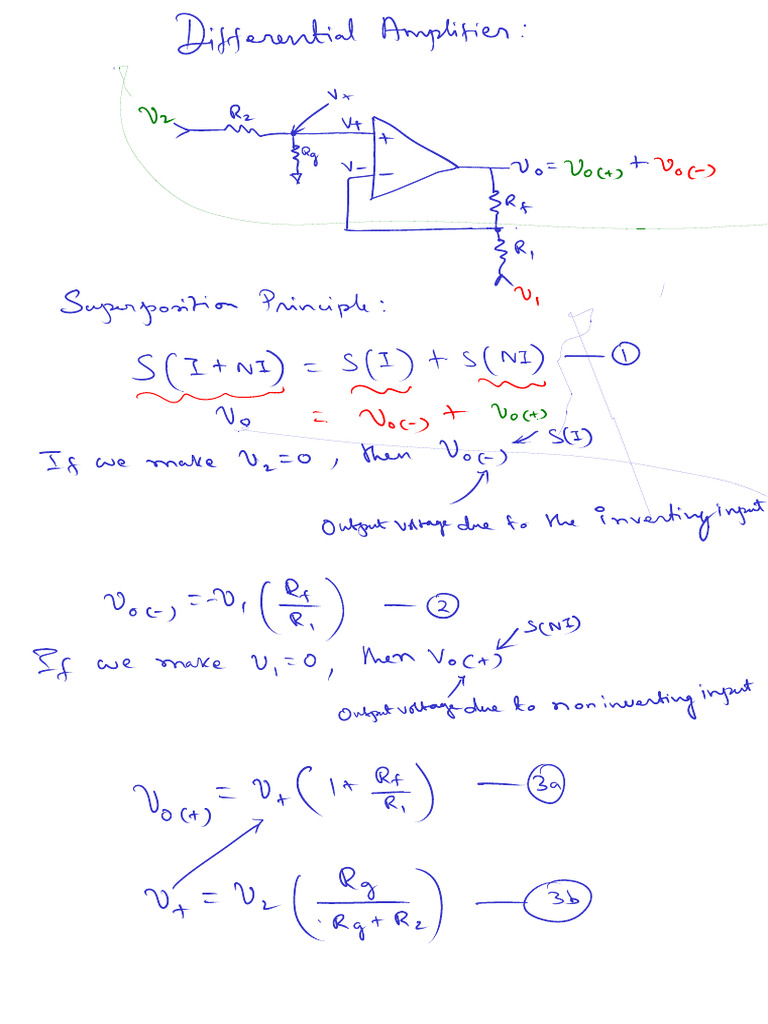 Differential Amplifier:
V+
V2
R2
V+
+
Rg
V-
-
Vo = Vo(+) + Vo(-)
Rf
R1
V1
Superposition Principle:
S(I + NI) = S(I) + S(NI) — ①
Vo = Vo(-) + Vo(+)
S(I)
If we make V2=0, then Vo(-)
Output voltage due to the inverting input
Vo(-) = -V1 (Rf/R1) — ②
S(NI)
If we make V1=0, then Vo(+)
Output voltage due to noninverting input
Vo(+) = V+ (1+ Rf/R1) — 3a
V+ = V2 (Rg/Rg + R2) — 3b